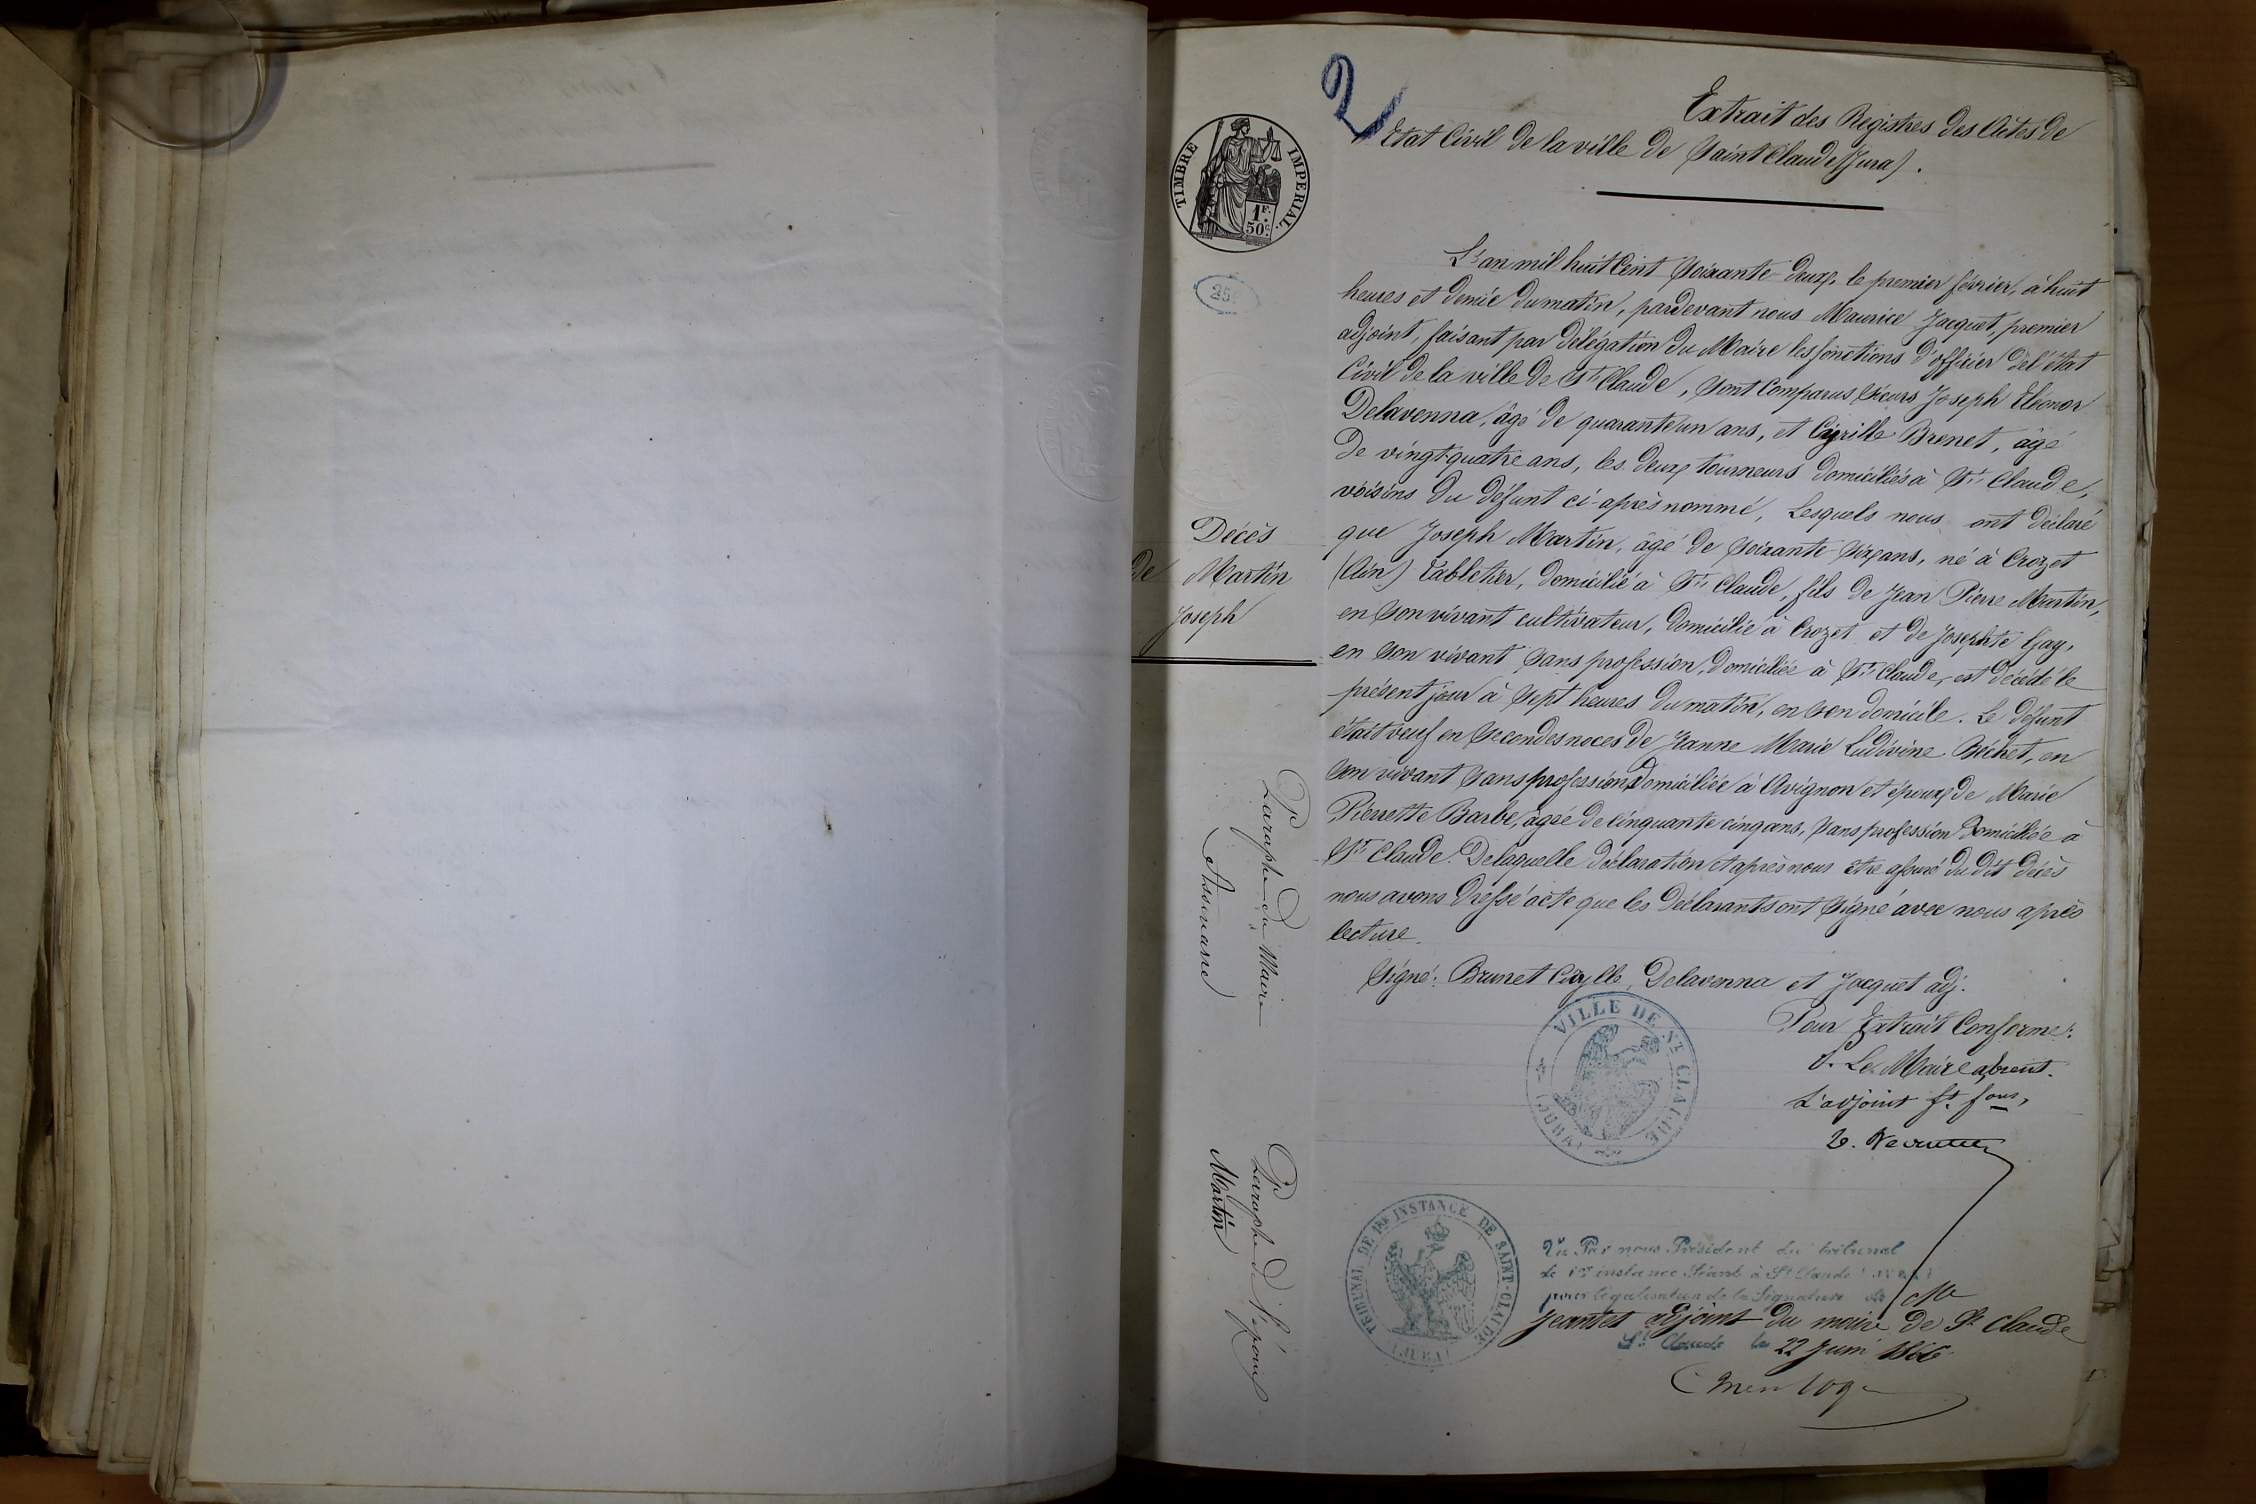 2
Extrait des Registres des Actes de
Etat Civil de la ville de Saint Claude (Jura).
TIMBRE IMPERIAL
1F.
50c.
25
L'an mil huit Cent Soixante-deux, le premier février, à huit
heures et demie du matin, pardevant nous Maurice Jacquet, premier
adjoint, faisant par délégation du Maire les fonctions d'officier de l'état
Civil de la ville de St Claude, Sont Comparus Sieurs Joseph Eléonor
Delavenna, âgé de quarante un ans, et Cyrille Brunet, âgé
de vingt-quatre ans, les deux tourneurs domiciliés à St Claude,
voisins du défunt ci-après nommé, Lesquels nous ont déclaré
que Joseph Martin, âgé de Soixante Six ans, né à Crozet
(Ain) Tabletier, domicilié à St Claude, fils de Jean Pierre Martin,
en Son vivant cultivateur, domicilié à Crozet et de Josephte Gay,
en Son vivant Sans profession, domiciliée à St Claude, est décédé le
présent jour à Sept heures du matin, en Son domicile. Le défunt
était veuf en Secondes noces de Jeanne Marie Ludivine Béchet, en
Son vivant Sans profession, domiciliée à Avignon et époux de Marie
Pierrette Barbe, âgée de Cinquante cinq ans, Sans profession domiciliée à
St Claude. De laquelle déclaration et après nous être assuré du dit décès
nous avons dressé acte que les déclarants ont Signé avec nous après
lecture.
Signé: Brunet Cirylle, Delavenna et Jacquet adj.
Décès
de Martin
Joseph
Paraphe du Maire
Paraphe de l'époux
Martin
Pour Extrait Conforme:
Le Maire absent.
L'adjoint ft. fons,
VILLE DE St CLAUDE
(JURA)
TRIBUNAL DE 1RE INSTANCE DE SAINT-CLAUDE
(JURA)
Vu Par nous Président du tribunal
de 1re instance Séant à St Claude (JURA)
pour légalisation de la Signature de Mr
Jeantet adjoint du maire de St Claude
St Claude le 22 Juin 1866